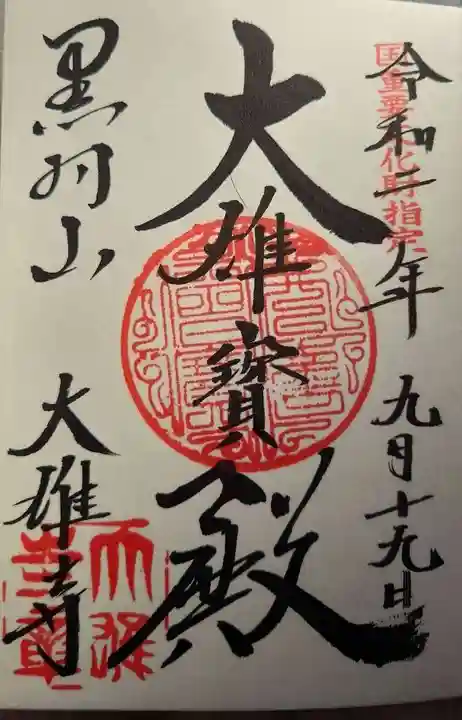 国重要文化財指定
令和二年九月十九日
大雄寳殿
黒羽山
大雄寺